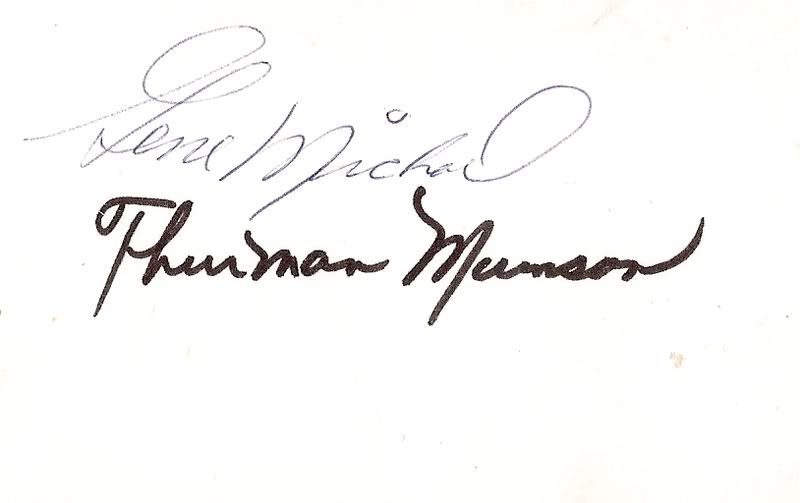 Gene Michael
Thurman Munson